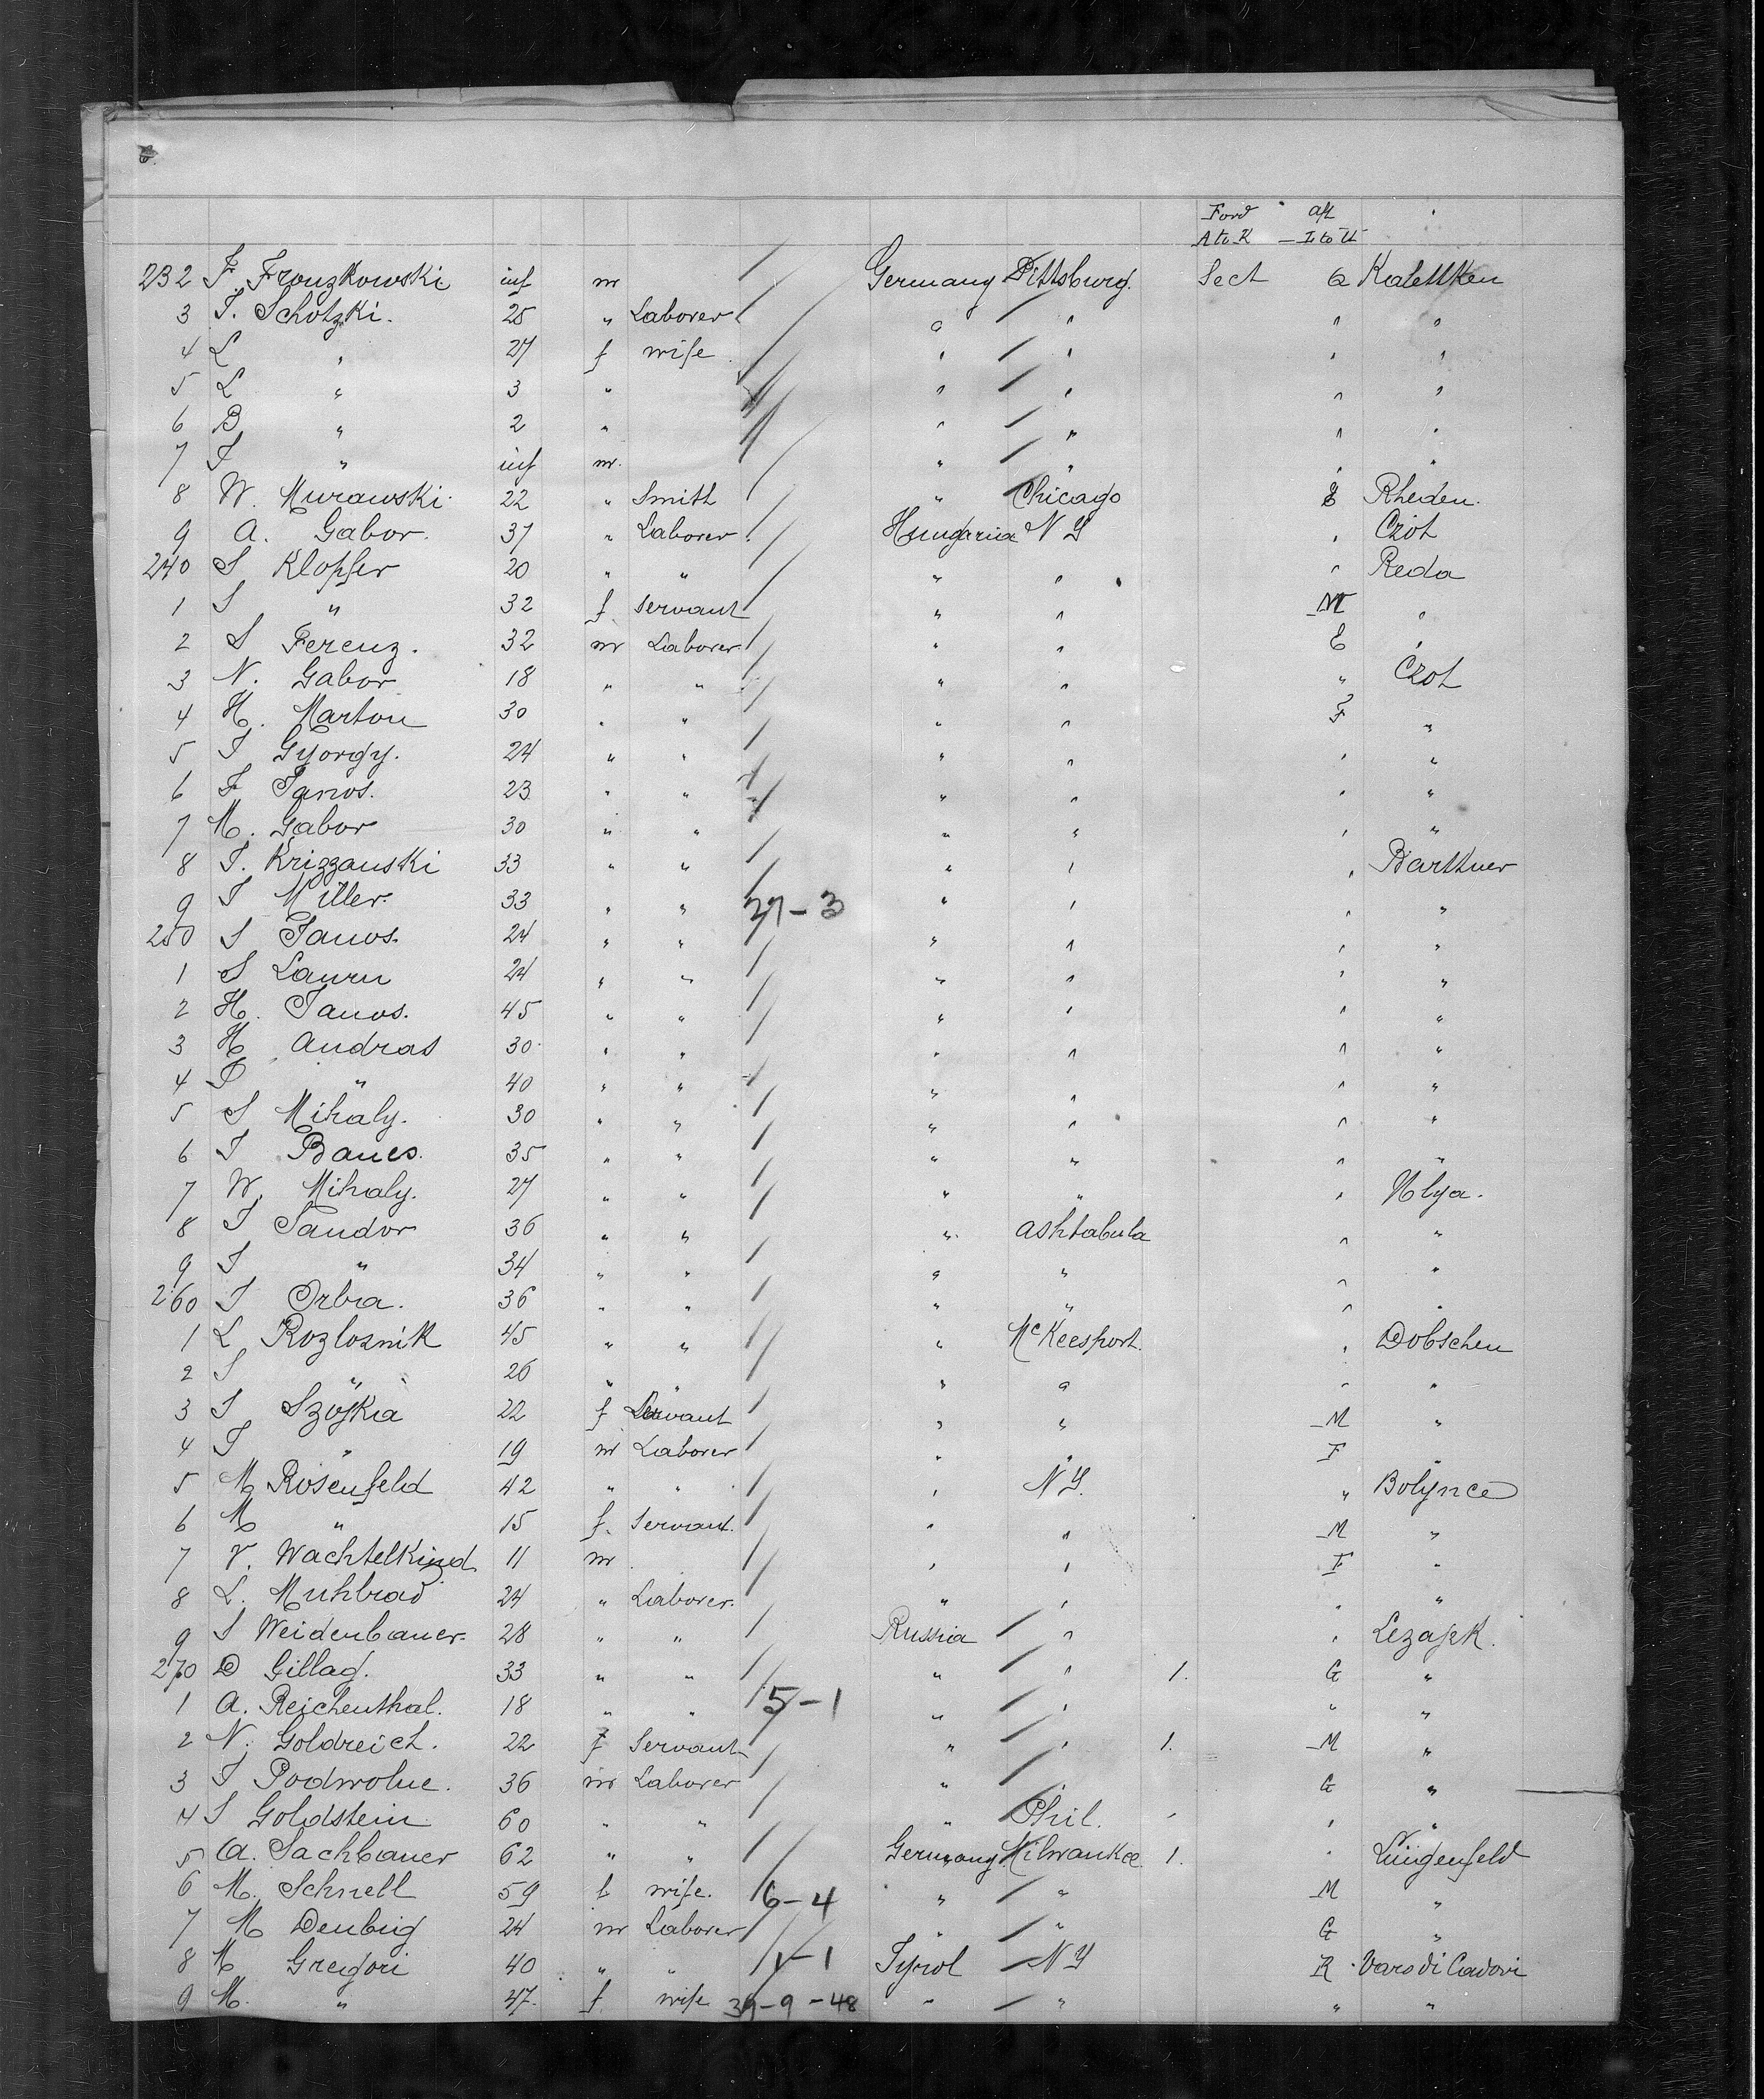 Ford " aft "
A to K — L to U
232 F. Fronzkowski inf m Germany Pittsburg. Sect a Kalettken
3 T. Schotzki. 25 " Laborer " " " "
4 L " 27 f wife " " " "
5 L " 3 " " " " "
6 B " 2 " " " " "
7 T " inf m. " " " "
8 W. Murawski. 22 " Smith " Chicago E Rheden.
9 A. Gabor. 37 " Laborer Hungaria NY " Czot
240 S Klopfer 20 " " " " " Reda
1 S " 32 f Servant " " M "
2 S Ferenz. 32 m Laborer " " E "
3 N. Gabor 18 " " " " " Czot
4 H. Marton 30 " " " " F "
5 I Gyorgy. 24 " " " " " "
6 F Janos. 23 " " " " " "
7 M. Gabor 30 " " " " " "
8 T. Krizzanski 33 " " " " " Barthuer
9 I Miller. 33 " " 37-3 " " " "
250 S Janos. 24 " " " " " "
1 S Lauru 24 " " " " " "
2 H. Janos. 45 " " " " " "
3 H Andras 30 " " " " " "
4 P " 40 " " " " " "
5 S Mihaly. 30 " " " " " "
6 I Banes. 35 " " " " " "
7 W. Mihaly. 27 " " " " " Holya.
8 I Sandor 36 " " " Ashtabula " "
9 I " 34 " " " " " "
260 I Orbra. 36 " " " " " "
1 L Rozloznik 45 " " " McKeesport. " Dobschen
2 S " 26 " " " " " "
3 S Szojka 22 f Servant " " M "
4 I " 19 m Laborer " " F "
5 M Rosenfeld 42 " " " NY. " Bolynce
6 M " 15 f. Servant. " " M "
7 V. Wachtelkind 11 m " " F "
8 L. Muhlrad 24 " Laborer. " " " "
9 S Weidenbauer. 28 " " Russia " " Lezajek.
270 D Gillag. 33 " " " " 1. G "
1 A. Reichenthal. 18 " " 5-1 " " " "
2 N. Goldreich. 22 f Servant " " 1. M "
3 I Podwolue. 36 m Laborer " G "
4 S Goldstein 60 " " " Phil. " " "
5 A. Sachbauer 62 " " Germany Milwaukee 1. " Lüngenfeld
6 M. Schnell 59 f wife. 6-4 " " M "
7 M Denbig 24 m Laborer " " G "
8 M Gregori 40 " " 1-1 Tyrol NY K Varo di Cadovi
9 M. " 47. f wife 39-9-48 " " " "